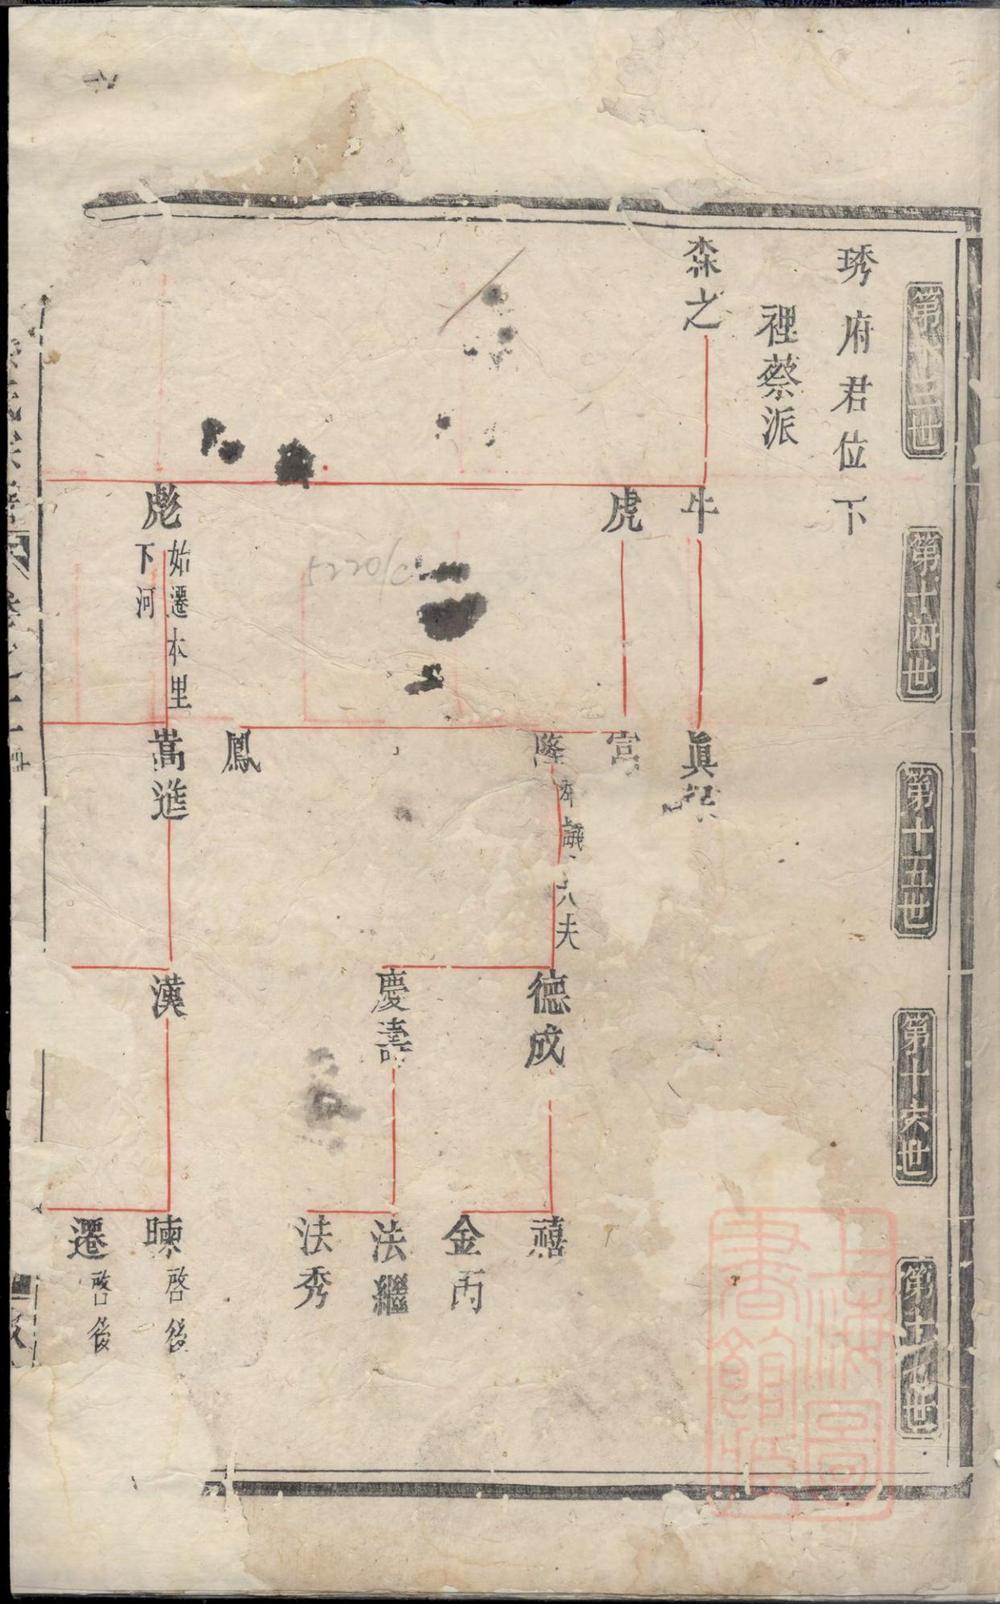 第十三世
第十四世
第十五世
第十六世
第十七世
琇府君位下
裡蔡派
森之
牛
虎
彪
始遷本里
下河
眞
宫
隆
大夫
鳳
嵩進
德成
慶壽
漢
禧
金丙
法繼
法秀
暕
啓後
遷
啓後
5220/C
上海圖書館藏